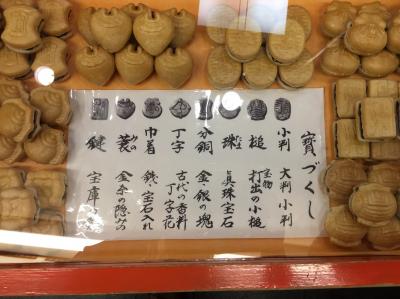 寳づくし
小判 大判 小判
槌 宝物 打出の小槌
珠 真珠 宝石
分銅 金・銀の塊
丁字 古代の香料 丁字花
巾着 銭・宝石入れ
蓑 みの 金命の隠みの
鍵 宝庫の